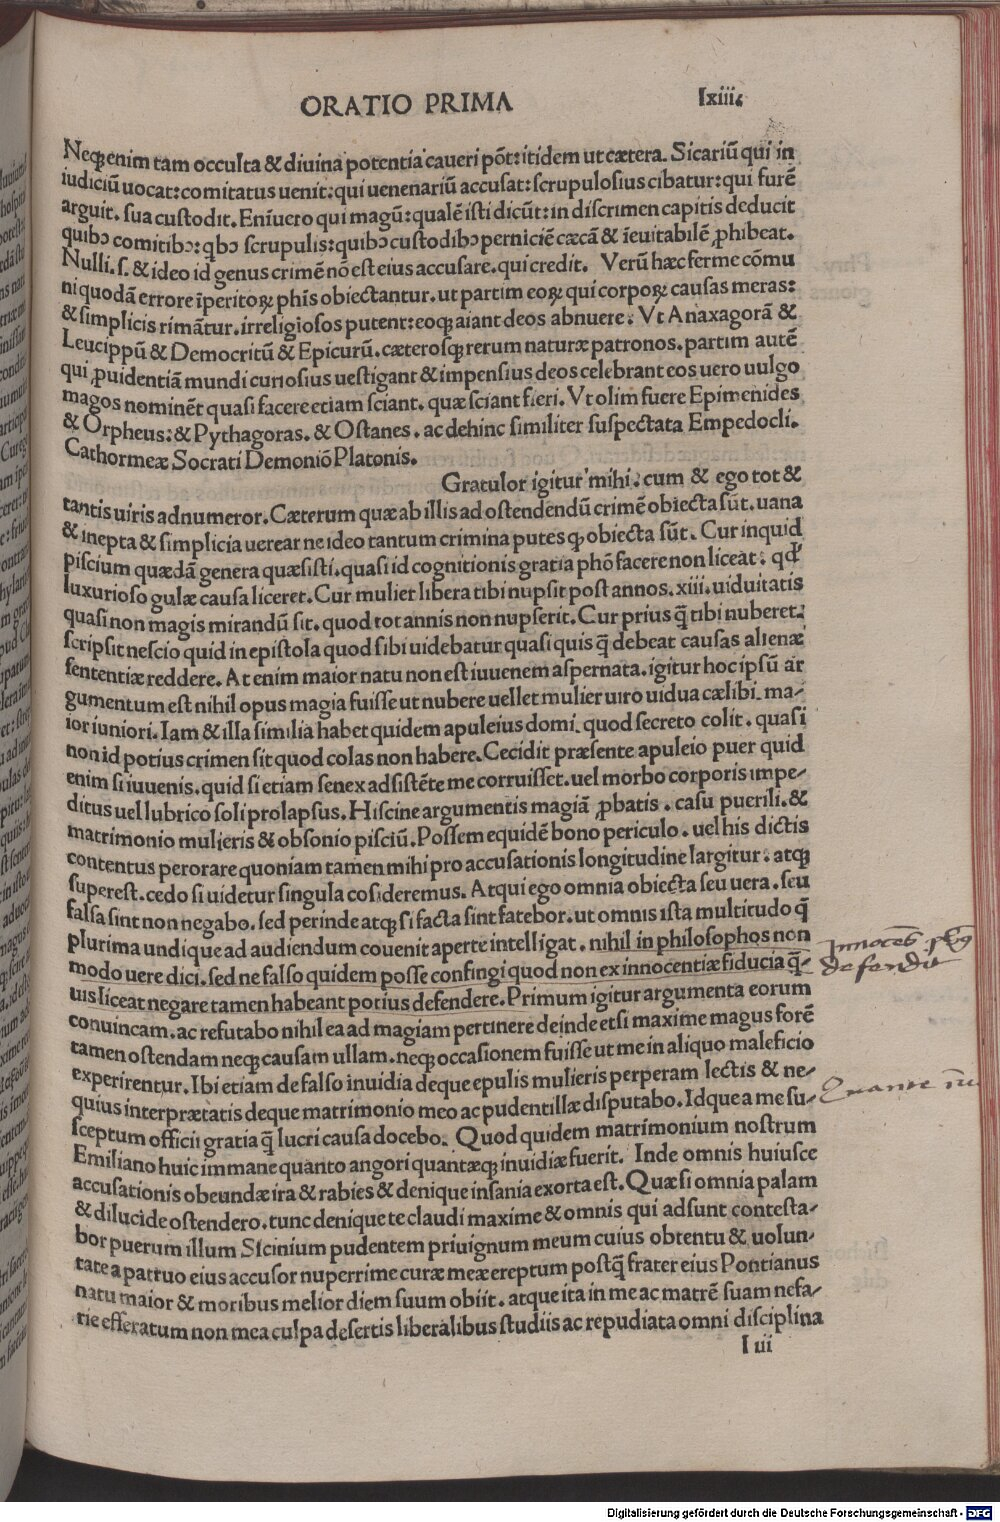 ORATIO PRIMA lxiii.
Neq; enim tam occulta & diuina potentia caueri põt: itidem ut cætera. Sicariũ qui in
iudiciũ uocat: comitatus uenit: qui uenenariũ accusat: scrupulosius cibatur: qui furẽ
arguit. sua custodit. Enĩuero qui magũ: qualẽ isti dicũt: in discrimen capitis deducit
quibꝯ comitibꝯ: qbꝯ scrupulis: quibꝯ custodibꝯ perniciẽ cæcã & ĩeuitabilẽ ꝓhibeat.
Nulli. s. & ideo id genus crimẽ nõ est eius accusare. qui credit. Verũ hæc ferme cõmu
ni quodã errore ĩperitoꝝ phĩs obiectantur. ut partim eoꝝ qui corpoꝝ causas meras:
& simplicis rimãtur. irreligiosos putent: eoq; aiant deos abnuere: Vt Anaxagorã &
Leucippũ & Democritũ & Epicurũ. cæterosq; rerum naturæ patronos. partim autẽ
qui ꝓuidentiã mundi curiosius uestigant & impensius deos celebrant eos uero uulgo
magos nominẽt quasi facere etiam sciant. quæ sciant fieri. Vt olim fuere Epimenides
& Orpheus: & Pythagoras. & Ostanes. ac dehinc similiter suspectata Empedocli.
Cathormeæ Socrati Demoniõ Platonis.
Gratulor igitur mihi: cum & ego tot &
tantis uiris adnumeror. Cæterum quæ ab illis ad ostendendũ crimẽ obiecta sũt. uana
& inepta & simplicia uerear ne ideo tantum crimina putes ꝙ obiecta sũt. Cur inquid
piscium quædã genera quæsisti. quasi id cognitionis gratia phõ facere non liceat: qđ
luxurioso gulæ causa liceret. Cur mulier libera tibi nupsit post annos. xiii. uiduitatis
quasi non magis mirandũ sit. quod tot annis non nupserit. Cur prius q̃ tibi nuberet:
scripsit nescio quid in epistola quod sibi uidebatur quasi quis q̃ debeat causas alienæ
sententiæ reddere. At enim maior natu non est iuuenem aspernata. igitur hoc ipsũ ar
gumentum est nihil opus magia fuisse ut nubere uellet mulier uiro uidua cælibi. ma-
ior iuniori. Iam & illa similia habet quidem apuleius domi. quod secreto colit. quasi
non id potius crimen sit quod colas non habere. Cecidit præsente apuleio puer quid
enim si iuuenis. quid si etiam senex adsistẽte me corruisset. uel morbo corporis impe-
ditus uel lubrico soli prolapsus. Hiscine argumentis magiã ꝓbatis. casu puerili. &
matrimonio mulieris & obsonio pisciũ. Possem equidẽ bono periculo. uel his dictis
contentus perorare quoniam tamen mihi pro accusationis longitudine largitur. atq;
superest. cedo si uidetur singula cosideremus. Atqui ego omnia obiecta seu uera. seu
falsa sint non negabo. sed perinde atq; si facta sint fatebor. ut omnis ista multitudo q̃
plurima undique ad audiendum couenit aperte intelligat. nihil in philosophos non
modo uere dici. sed ne falso quidem posse confingi quod non ex innocentiæ fiducia q̃-
uis liceat negare tamen habeant potius defendere. Primum igitur argumenta eorum
conuincam. ac refutabo nihil ea ad magiam pertinere deinde etsi maxime magus forẽ
tamen ostendam neq; causam ullam. neq; occasionem fuisse ut me in aliquo maleficio
experirentur. Ibi etiam de falso inuidia deque epulis mulieris perperam lectis & ne-
quius interprætatis deque matrimonio meo ac pudentillæ disputabo. Idque a me su-
sceptum officii gratia q̃ lucri causa docebo. Quod quidem matrimonium nostrum
Emiliano huic immane quanto angori quantæq; inuidiæ fuerit. Inde omnis huiusce
accusationis obeundæ ira & rabies & denique insania exorta est. Quæ si omnia palam
& dilucide ostendero. tunc denique te claudi maxime & omnis qui adsunt contesta-
bor puerum illum Sicinium pudentem priuignum meum cuius obtentu & uolun-
tate a patruo eius accusor nuperrime curæ meæ ereptum postq̃ frater eius Pontianus
natu maior & moribus melior diem suum obiit. atque ita in me ac matrẽ suam nefa-
rie efferatum non mea culpa desertis liberalibus studiis ac repudiata omni disciplina
I iii
defendit
Digitalisierung gefördert durch die Deutsche Forschungsgemeinschaft - DFG